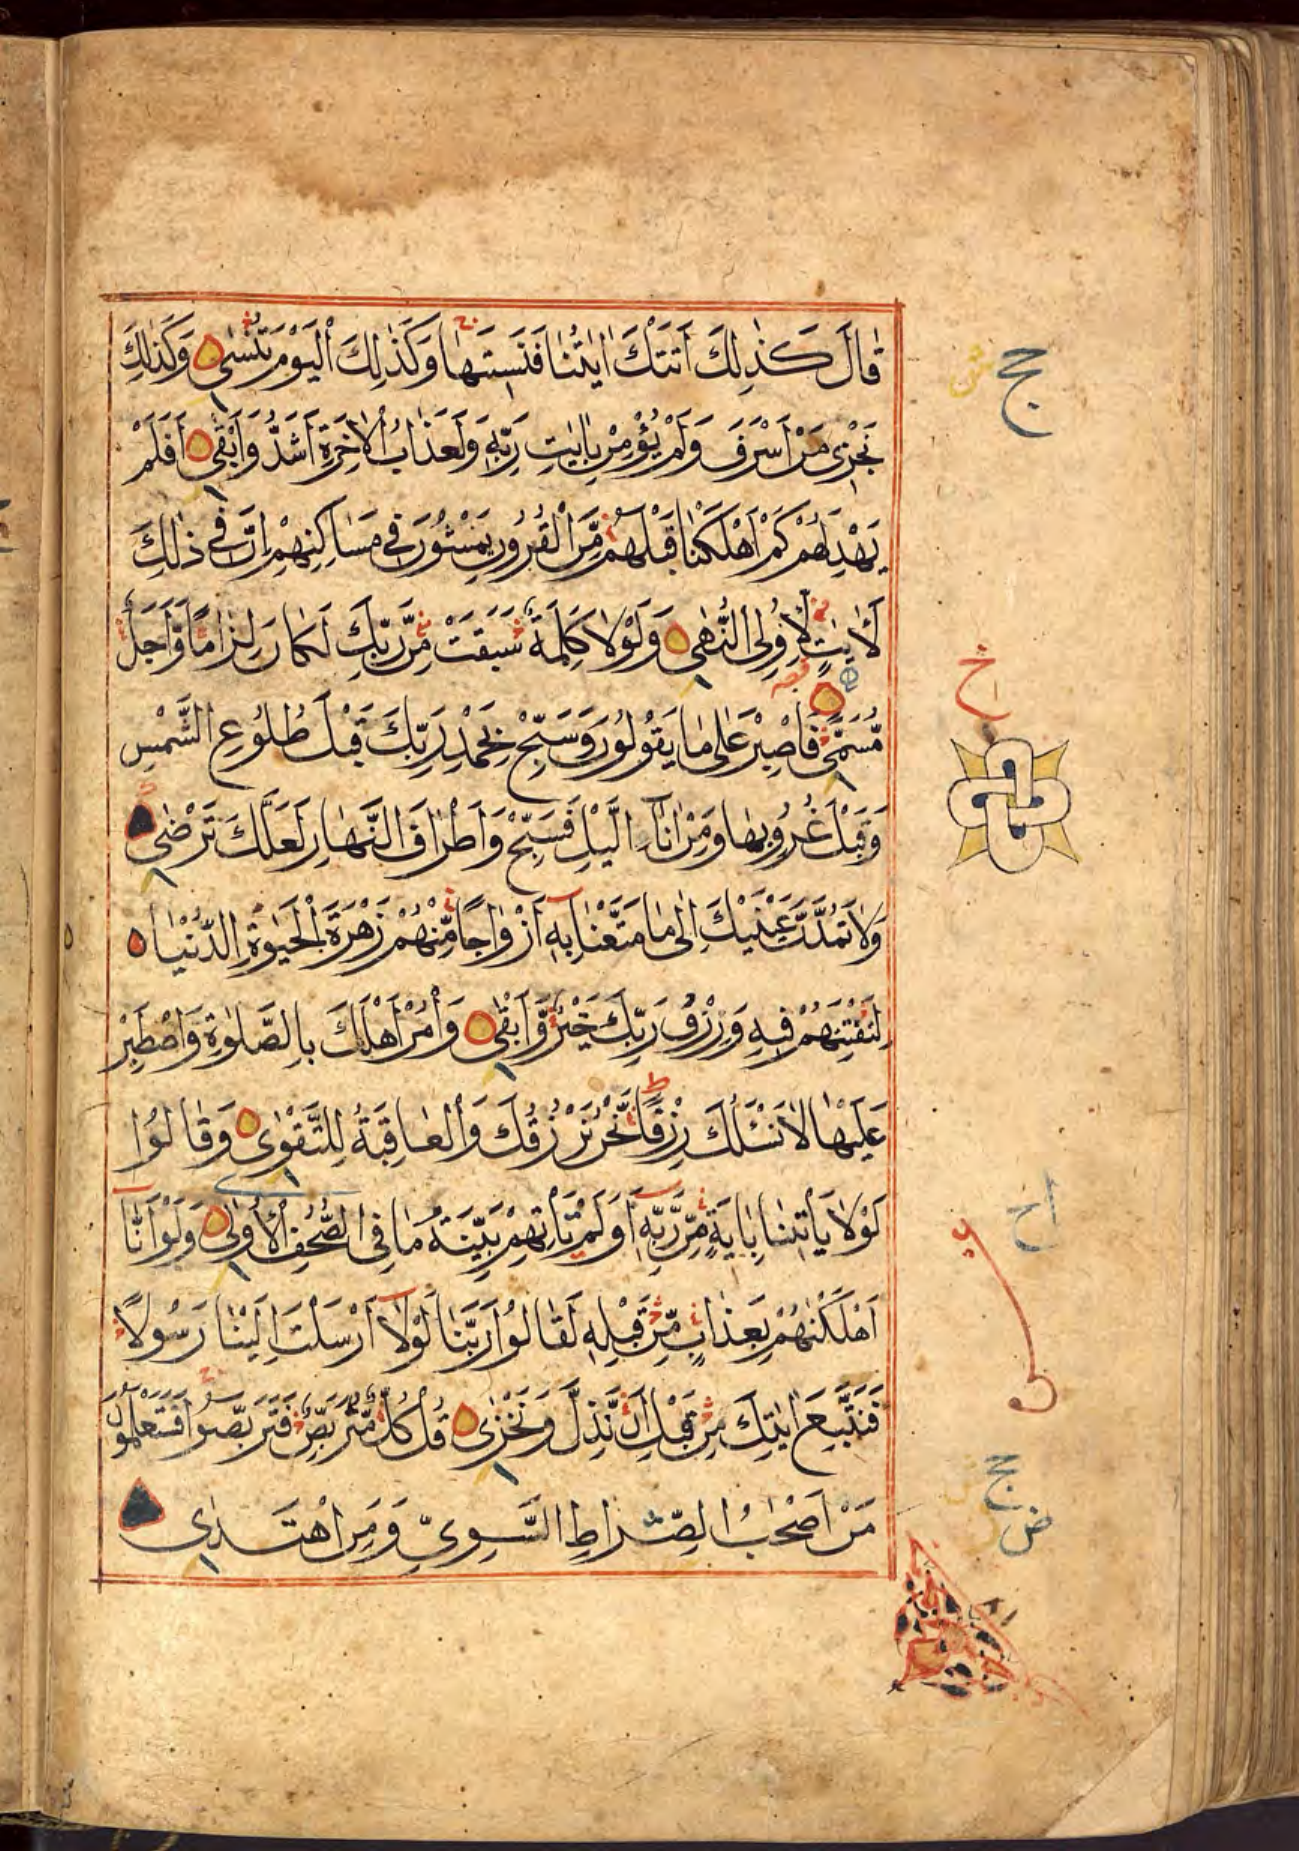 قَالَ كَذٰلِكَ اَتَتْكَ اٰيٰتُنَا فَنَسِيتَهَا وَكَذٰلِكَ الْيَوْمَ تُنْسٰى وَكَذٰلِكَ
نَجْزِى مَنْ اَسْرَفَ وَلَمْ يُؤْمِنْ بِاٰيٰتِ رَبِّهٖ وَلَعَذَابُ الْاٰخِرَةِ اَشَدُّ وَاَبْقٰى اَفَلَمْ
يَهْدِ لَهُمْ كَمْ اَهْلَكْنَا قَبْلَهُمْ مِّنَ الْقُرُونِ يَمْشُونَ فِى مَسَاكِنِهِمْ اِنَّ فِى ذٰلِكَ
لَاٰيٰتٍ لِاُولِى النُّهٰى وَلَوْلَا كَلِمَةٌ سَبَقَتْ مِنْ رَّبِّكَ لَكَانَ لِزَامًا وَّاَجَلٌ
مُّسَمًّى فَاصْبِرْ عَلٰى مَا يَقُولُونَ وَسَبِّحْ بِحَمْدِ رَبِّكَ قَبْلَ طُلُوعِ الشَّمْسِ
وَقَبْلَ غُرُوبِهَا وَمِنْ اٰنَآءِ الَّيْلِ فَسَبِّحْ وَاَطْرَافَ النَّهَارِ لَعَلَّكَ تَرْضٰى
وَلَا تَمُدَّنَّ عَيْنَيْكَ اِلٰى مَا مَتَّعْنَا بِهٖٓ اَزْوَاجًا مِّنْهُمْ زَهْرَةَ الْحَيٰوةِ الدُّنْيَا
لِنَفْتِنَهُمْ فِيهِ وَرِزْقُ رَبِّكَ خَيْرٌ وَّاَبْقٰى وَأْمُرْ اَهْلَكَ بِالصَّلٰوةِ وَاصْطَبِرْ
عَلَيْهَا لَا نَسْئَلُكَ رِزْقًا نَّحْنُ نَرْزُقُكَ وَالْعَاقِبَةُ لِلتَّقْوٰى وَقَالُوا
لَوْلَا يَأْتِينَا بِاٰيَةٍ مِّنْ رَّبِّهٖٓ اَوَلَمْ تَأْتِهِمْ بَيِّنَةُ مَا فِى الصُّحُفِ الْاُولٰى وَلَوْ اَنَّآ
اَهْلَكْنٰهُمْ بِعَذَابٍ مِّنْ قَبْلِهٖ لَقَالُوا رَبَّنَا لَوْلَآ اَرْسَلْتَ اِلَيْنَا رَسُولًا
فَنَتَّبِعَ اٰيٰتِكَ مِنْ قَبْلِ اَنْ نَّذِلَّ وَنَخْزٰى قُلْ كُلٌّ مُّتَرَبِّصٌ فَتَرَبَّصُوا فَسَتَعْلَمُونَ
مَنْ اَصْحٰبُ الصِّرَاطِ السَّوِيِّ وَمَنِ اهْتَدٰى